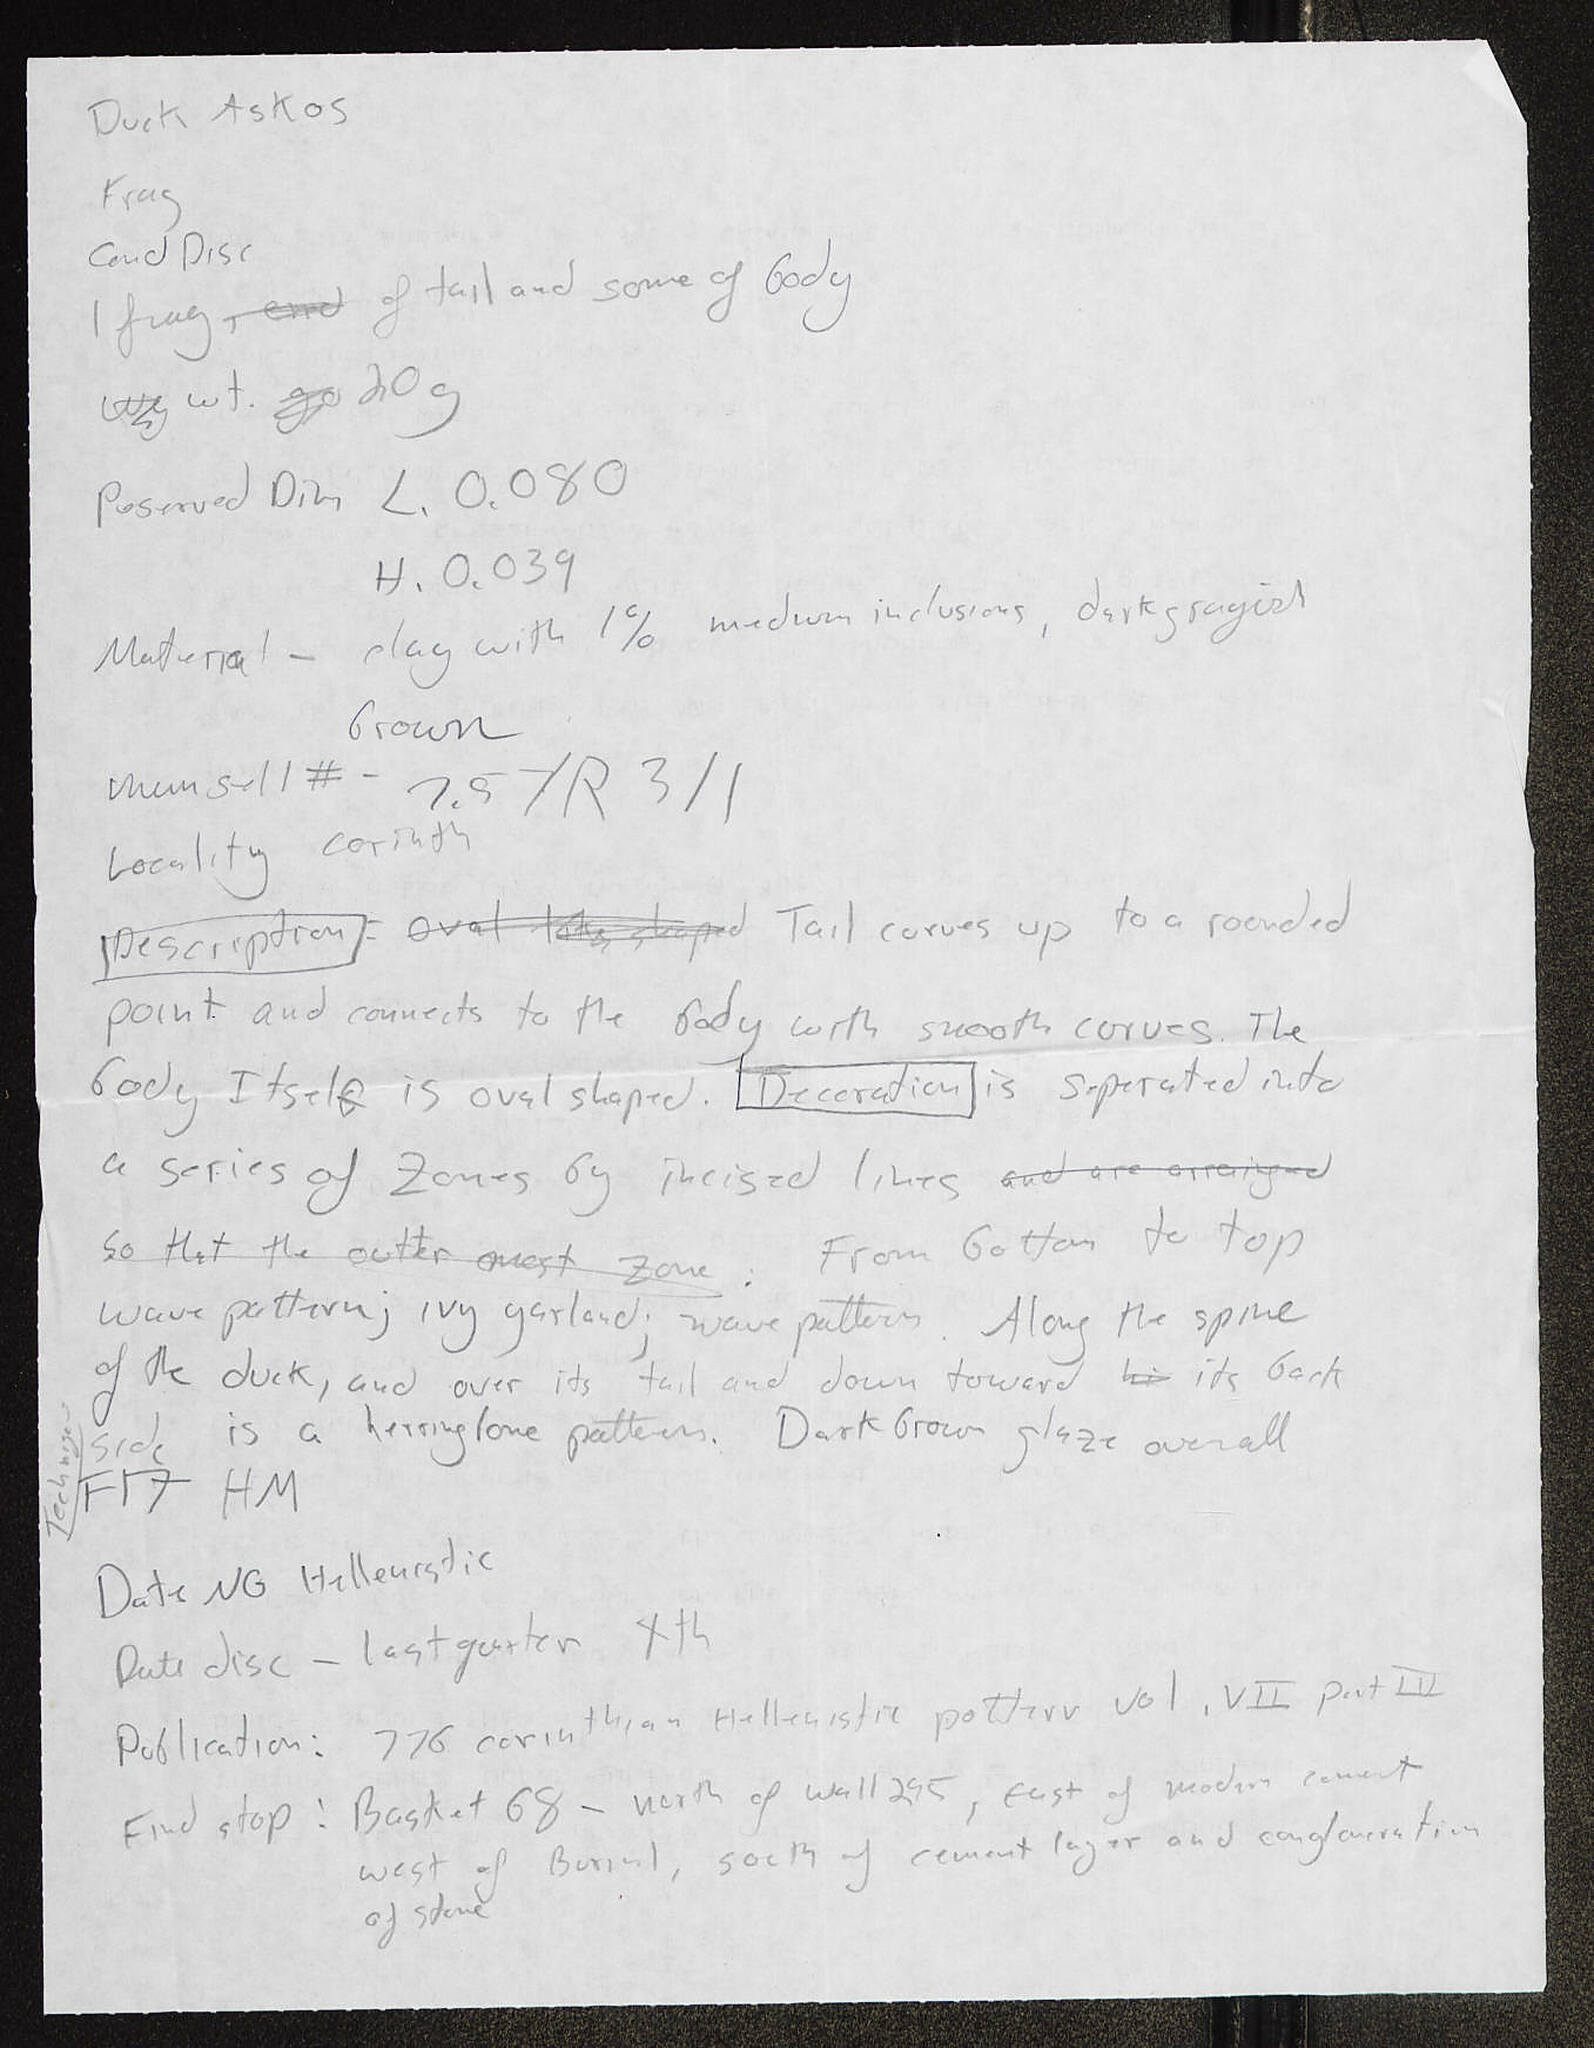 Duck Askos
Frag
Cond Disc
1 frag, end of tail and some of body
wt. 20g
Poserved Dim L. 0.080
H. 0.039
Material - clay with 1% medium inclusions, dark grayish
brown
munsell # - 7.5 YR 3/1
Locality corinth
Description: oval shaped Tail curves up to a rounded
point and connects to the body with smooth curves. The
body Itself is oval shaped. Decoration is seperated into
a series of Zones by incised lines and are arrainged
so that the outter most zone : From bottom to top
wave pattern; ivy garland; wave pattern. Along the spine
of the duck, and over its tail and down toward its back
side is a herringbone pattern. Dark brown glaze overall
HM
Date NG Hellenistic
Date disc - last quarter 4th
Publication: 776 corinthian Hellenistic pottery vol. VII part III
Find stop: Basket 68 - north of wall 295, east of modern cement
west of Burial, south of cement layer and conglomeration
of stone